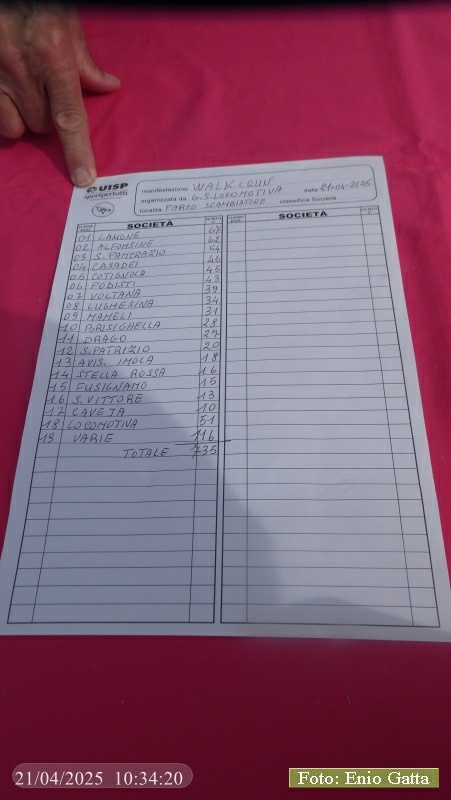 UISP
sportpertutti
manifestazione WALK & RUN
organizzata da G.S. LOCOMOTIVA data 21-04-2025
località PARCO SCAMBIATORE classifica Società
SOCIETÀ PUNTI
01 LAMONE 67
02 ALFONSINE 62
03 S. PANCRAZIO 54
04 CASADEI 46
05 COTIGNOLA 45
06 PODISTI 43
07 VOLTANA 39
08 LUGHESINA 34
09 MAMELI 31
10 BRISIGHELLA 28
11 DRAGO 27
12 S. PATRIZIO 20
13 AVIS. IMOLA 18
14 STELLA ROSSA 16
15 FUSIGNANO 15
16 S. VITTORE 13
17 CAVEJA 10
18 LOCOMOTIVA 51
19 VARIE 116
TOTALE 735
SOCIETÀ
21/04/2025 10:34:20
Foto: Enio Gatta